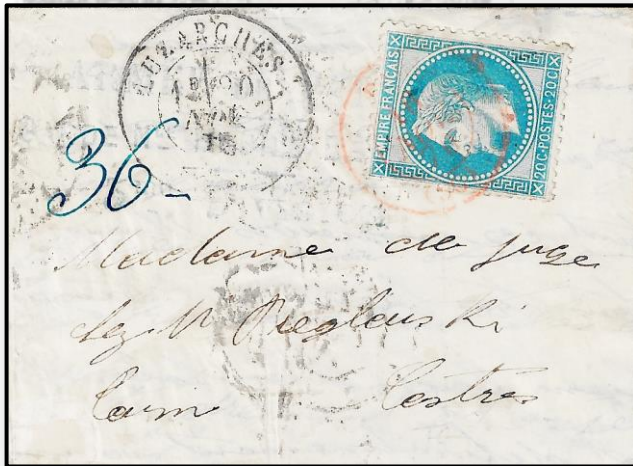 LUZARCHES
EMPIRE FRANCAIS
20C·POSTES·20C
36-
Madame de Juge
chez M
Tarn Castres